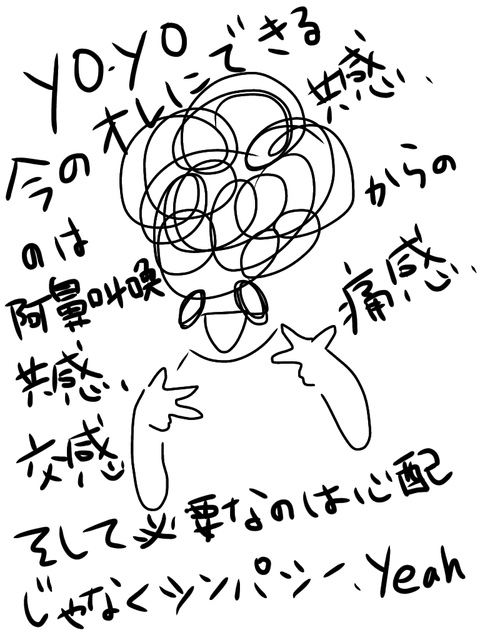 YO-YO
今の
オレにできる
のは
共感、
からの
痛感、
阿鼻叫喚
共感、
交感
そして必要なのは心配
じゃなくシンパシー、Yeah